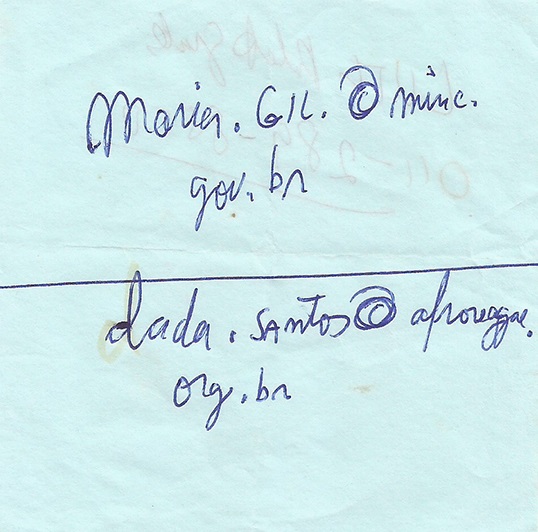 Maria. GIL. @ minc.
gov. br
dada. SANtos@ afroreggae.
org. br